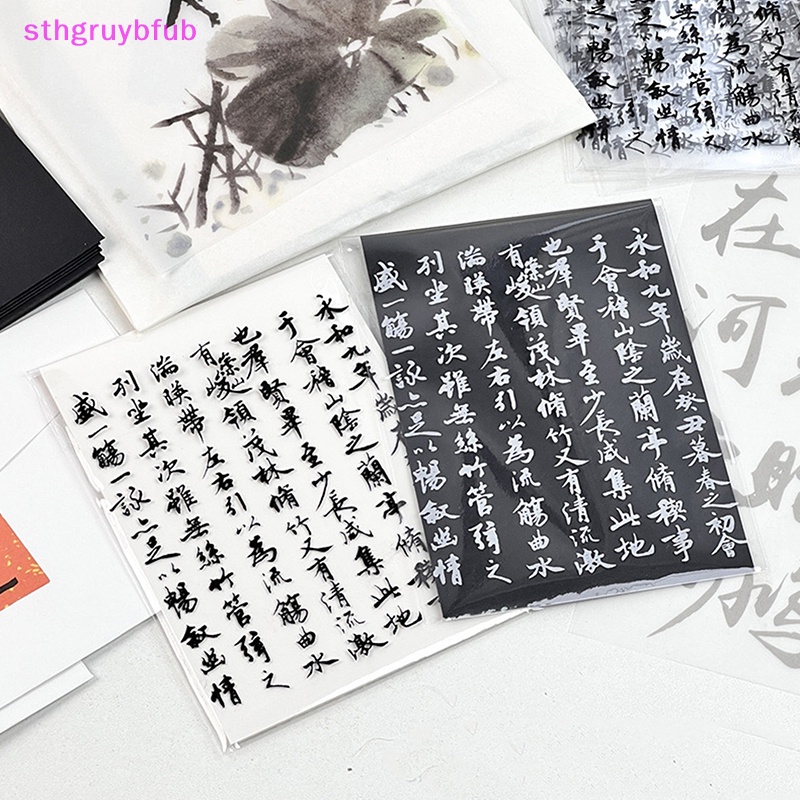 sthgruybfub
永和九年歲在
于會稽山陰之蘭亭脩稧
也羣賢畢至少長咸集此地
有崇山峻領茂林脩竹又有清流激
湍暎帶左右引以為流觴曲水
列坐其次雖無絲竹管弦之
盛一觴一詠亦足以暢敘幽情
永和九年歲在癸丑暮春之初會
于會稽山陰之蘭亭脩稧事
也羣賢畢至少長咸集此地
有崇山峻領茂林脩竹又有清流激
湍暎帶左右引以為流觴曲水
列坐其次雖無絲竹管弦之
盛一觴一詠亦足以暢敘幽情
脩竹又有清流
為流觴曲水
絲竹管弦之
暢敘幽情
在河